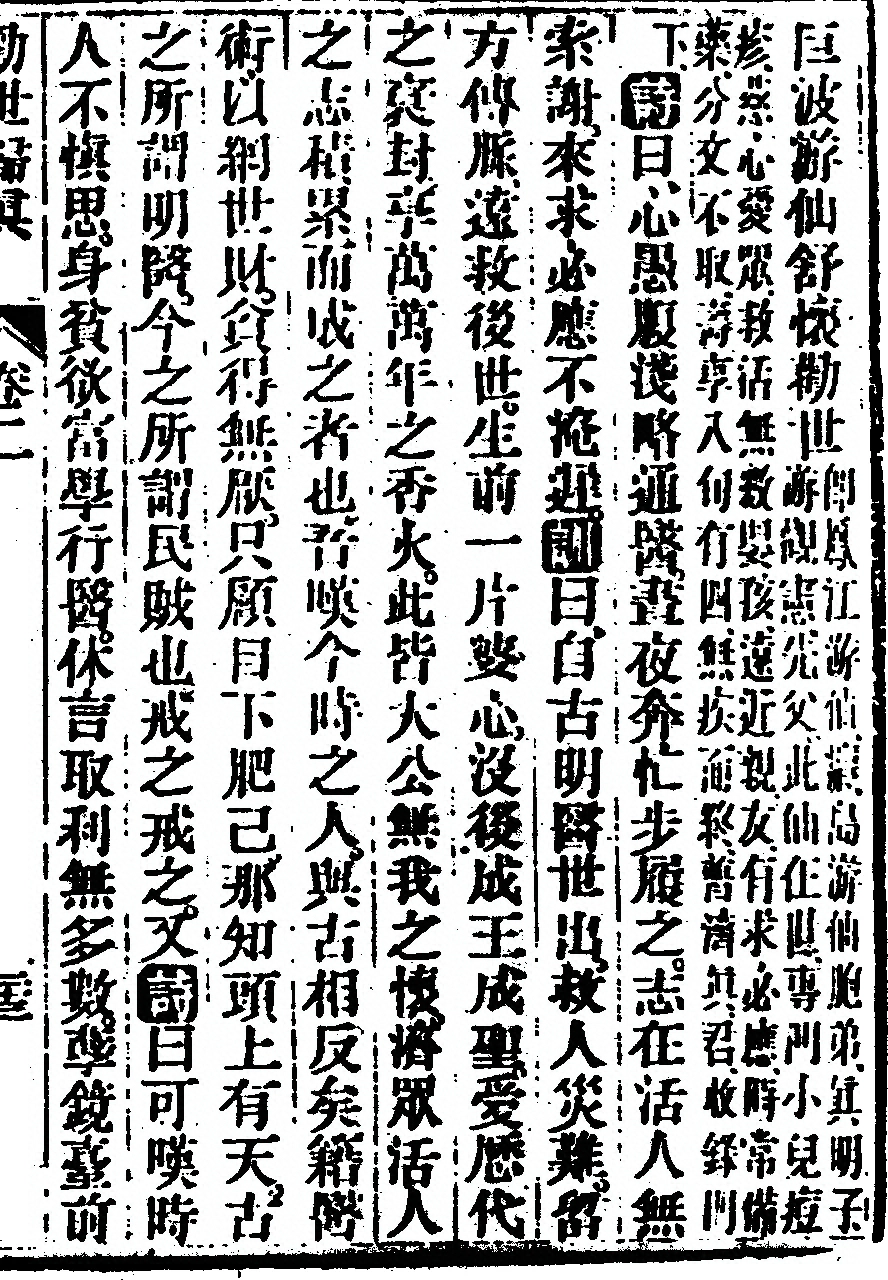 巨波游仙舒懷勸世
即鳳江游仙讓局游仙胞弟真明子
游觀憲先父此仙在世專門小兒痘
疹慈心愛眾救活無數嬰孩遠近親友有求必應時常備
藥分文不取壽享八旬有四無疾而終普濟真君收錄門
下詩曰心愚腹淺略通醫晝夜奔忙步履之志在活人無
索謝來求必應不掩遲訓曰自古明醫世出救人災難留
方傳脈遠救後世生前一片婆心沒後成王成聖受歷代
之褒封享萬萬年之香火此皆大公無我之懷濟眾活人
之志積累而成之者也吾嘆今時之人與古相反矣籍醫
術以網世財貪得無厭只顧目下肥己那知頭上有天古
之所謂明醫今之所謂民賊也戒之戒之又詩曰可嘆時
人不慎思身貧欲富學行醫休言取利無多數孽鏡臺前
勸世歸真
卷二